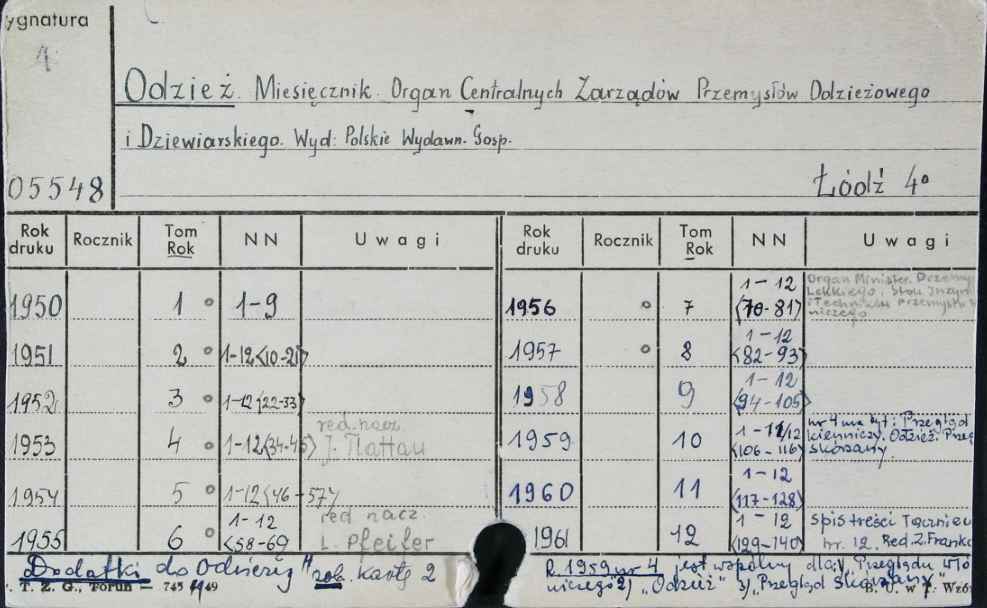 ygnatura
4
Odzież. Miesięcznik. Organ Centralnych Zarządów Przemysłów Odzieżowego
i Dziewiarskiego. Wyd: Polskie Wydawn. Gosp.
05548
Łódź 4°
Rok druku Rocznik Tom Rok NN Uwagi Rok druku Rocznik Tom Rok NN Uwagi
1950 1° 1-9
1956 ° 7 1-12 <70-81> Organ Minister. Przemy
Lekkiego i Stow. Inżyni
i Techników Przemysłu
niczego
1951 2° 1-12<10-21>
1957 ° 8 1-12 <82-93>
1952 3° 1-12<22-33>
1958 9 1-12 <94-105>
1953 4° 1-12<34-45> red. nacz. J. Tlattau
1959 10 1-11/12 <106-116> nr 4 ma tyt: Przegląd
kienniczy. Odzież. Przeg
skórzany.
1954 5° 1-12<46-57>
1960 11 1-12 <117-128>
1955 6° 1-12 <58-69> red nacz. L. Pfeifer
1961 12 1-12 <129-140> Spis treści
nr. 12. Red. Z. Franko
Dodatki do Odzieży" zob. kartę 2
R. 1959 nr 4 jest wspólny dla: 1/ „Przeglądu Włó
niczego" 2/ „Odzież" 3/ „Przegląd Skórzany"
. T. Z. G., Toruń — 745 49
B. U. w T. Wzór